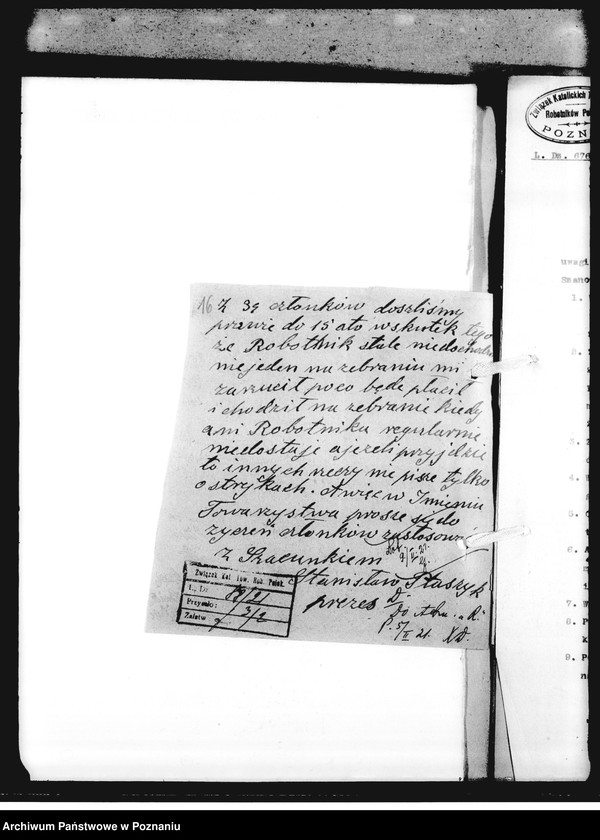 16 Z 39 członków doszliśmy
prawie do 15 ato wskutek tego
że Robotnik stale niedochodzi
niejeden na zebraniu mi
zarzucił poco będę płacił
i chodził na zebranie kiedy
ani Robotnika regularnie
niedostaje a jeżeli przyjdzie
to innych rzeczy nie pisze tylko
o strejkach. A więc w Imieniu
Towarzystwa proszę się do
życzeń członków zastosować
Z Szacunkiem
Stanisław Staszyk
prezes
Do Adm. "R."
P. 5/II 21.
Związek Kat. Tow. Rob. Polsk.
L. Dz. 89/21
Przyjęto: 3/2
Załatw.
Związek Katolickich
Robotników
POZN
L. Dz. 676
uwagi
1.
2.
3.
4.
5.
6.
7.
8. P
9. P
Archiwum Państwowe w Poznaniu